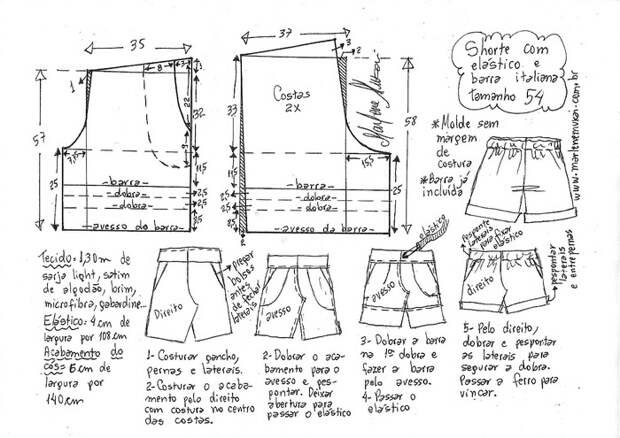 Shorte com
elástico e
barra italiana
tamanho 54
www.marlenemukai.com.br
* Molde sem
margem
de
costura
* Barra já
incluída
35
8
3
1
32
22
57
7,5
11,5
25
2,5
2,5
- barra -
- dobra -
- dobra -
- avesso da barra -
37
3
2
33
Costas
2X
58
15,5
11,5
25
2,5
2,5
25
2
- barra -
- dobra -
- dobra -
- avesso da barra -
Tecido = 1,30m de
sarja light, satim
de algodão, brim,
microfibra, gabardine...
Elástico = 4 cm de
largura por 108 cm
Acabamento do
cós = 6 cm de
largura por
140 cm
Direito
prepare
bolsos
antes
de fechar
laterais
avesso
elástico
avesso
pesponte
laterais
para fixar
elástico
direito
pespontar
laterais
e entrepernas
1- Costurar gancho,
pernas e laterais.
2- Costurar o acaba-
mento pelo direito
com costura no centro
das costas.
2- Dobrar o aca-
bamento para o
avesso e pes-
pontar. Deixar
abertura para
passar o elástico
3- Dobrar a barra
na 1ª dobra e
fazer a barra
pelo avesso.
4- Passar o
elástico
5- Pelo direito,
dobrar e pespontar
as laterais para
segurar a dobra.
Passar a ferro para
vincar.